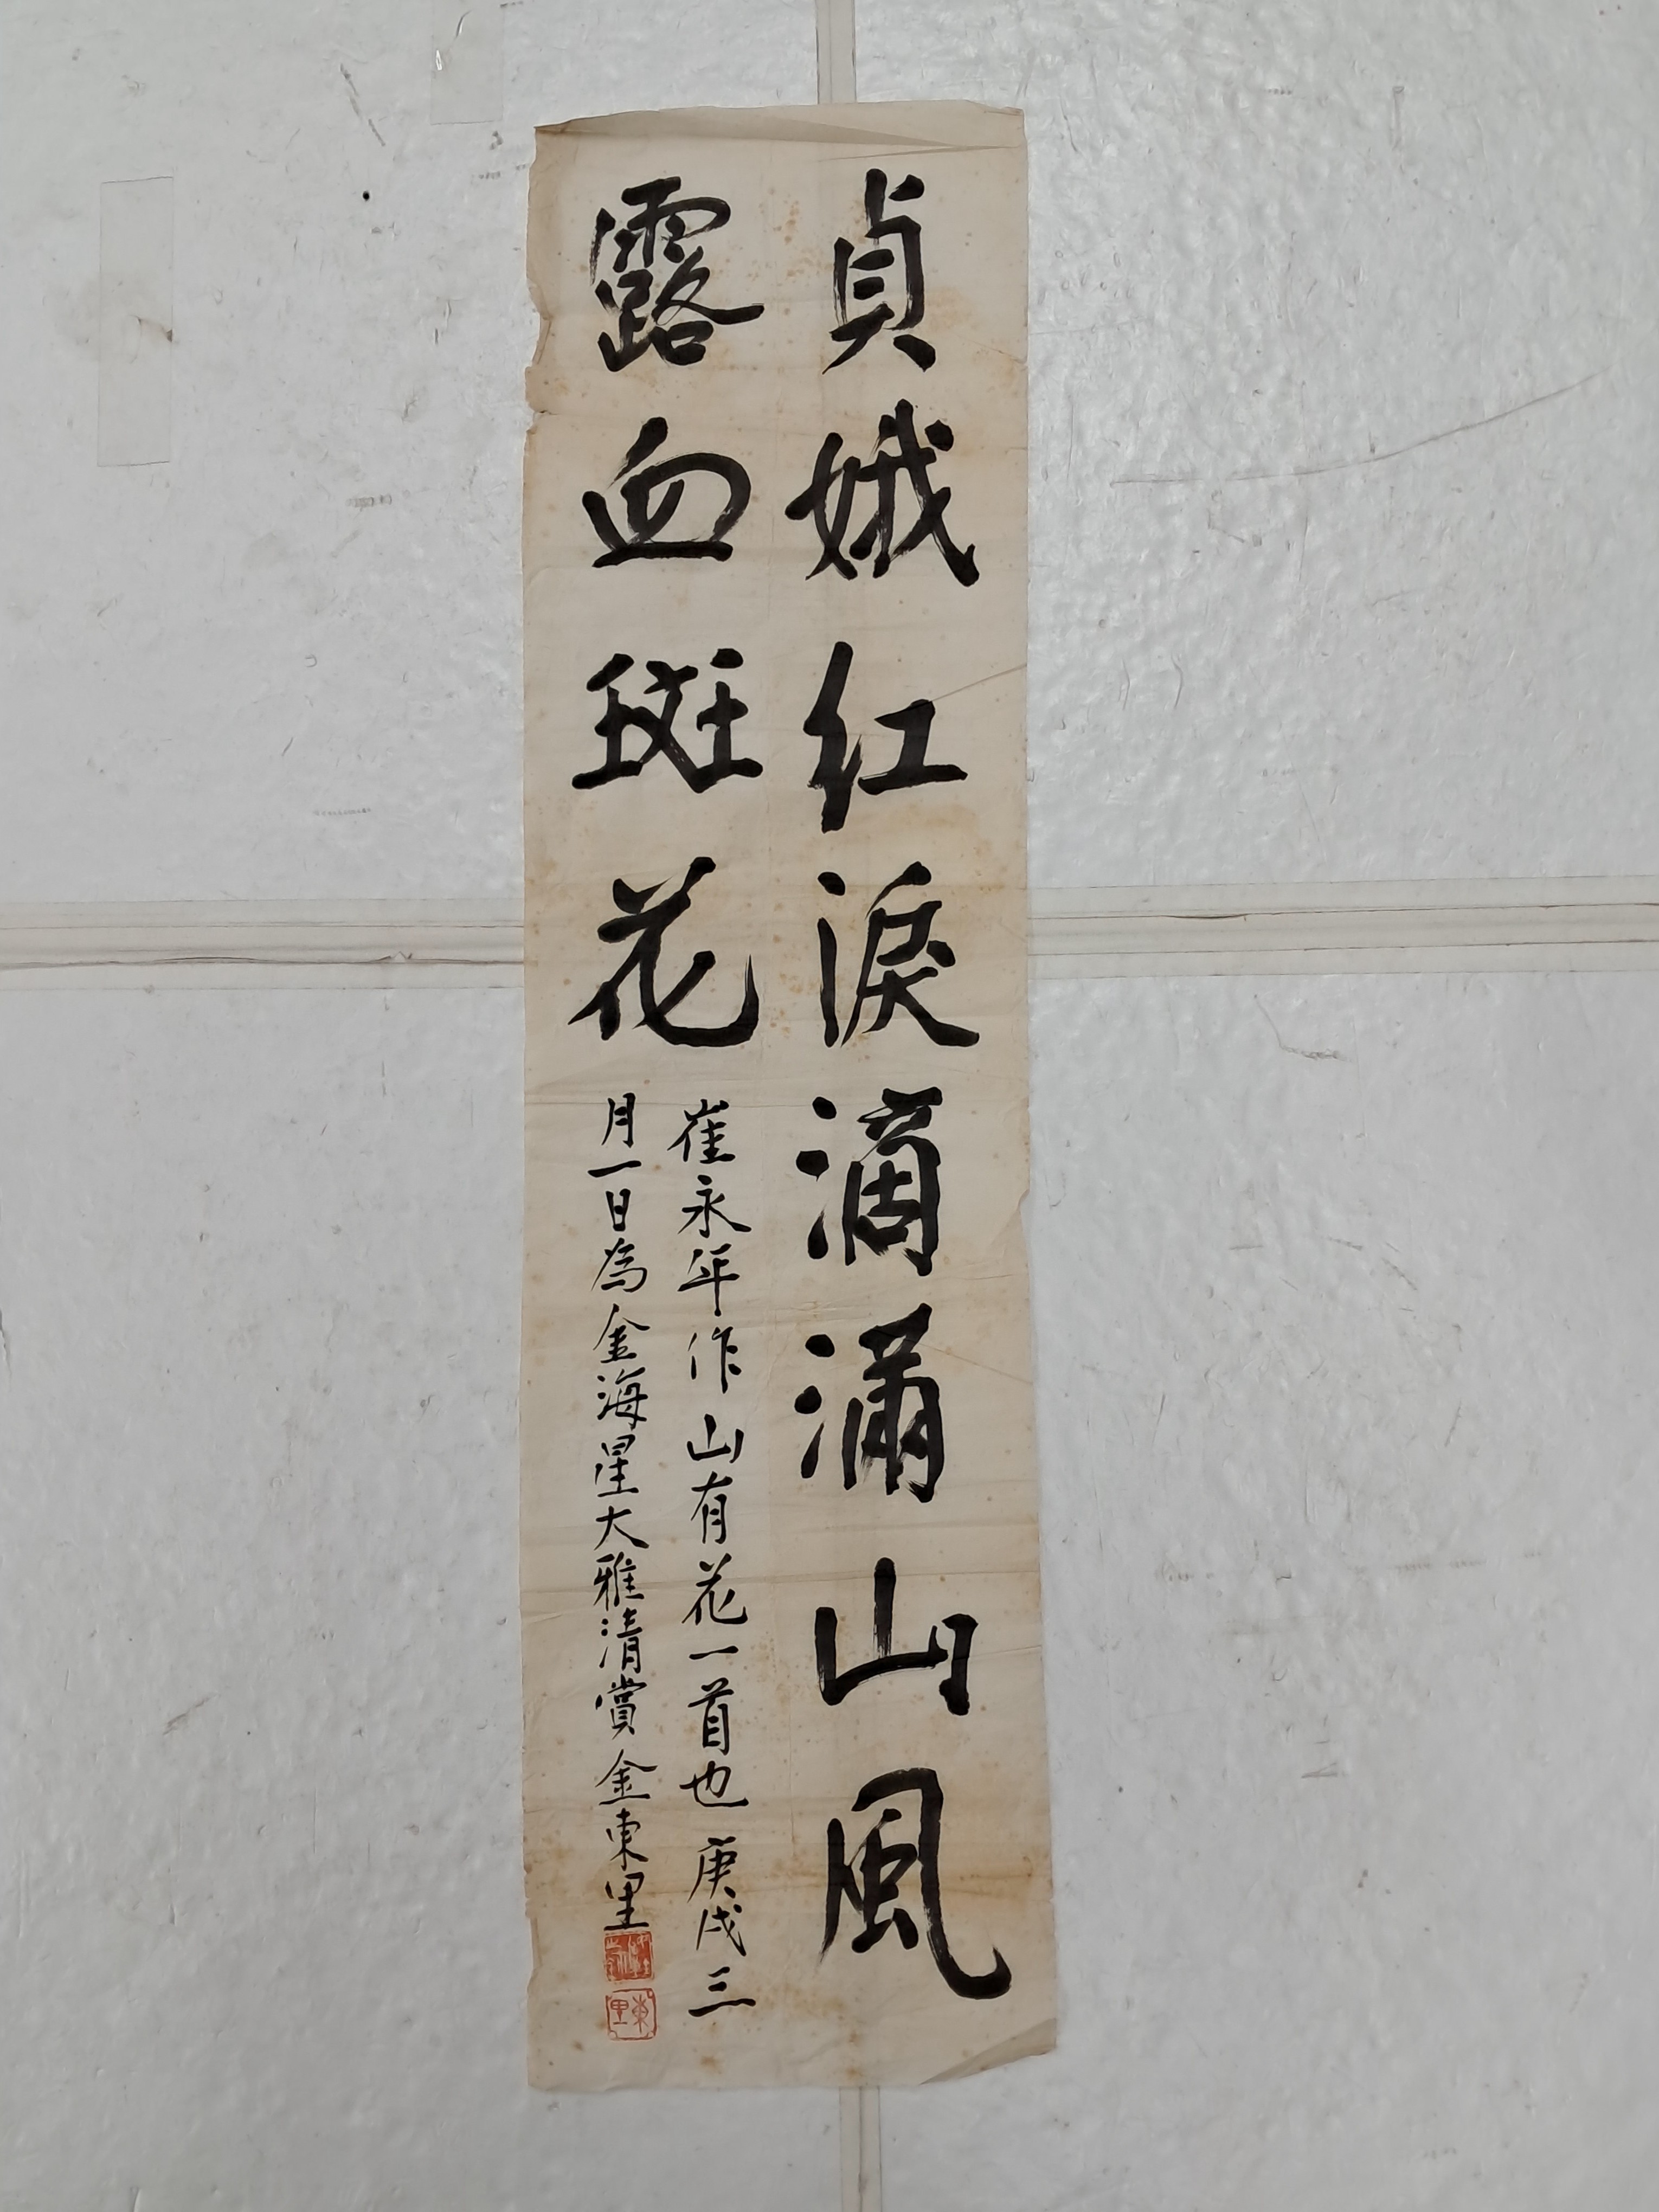 貞娥紅淚滴滿山風
露血斑花
崔永年作山有花一首也 庚戌三
月一日為金海星大雅清賞 金東里
東里